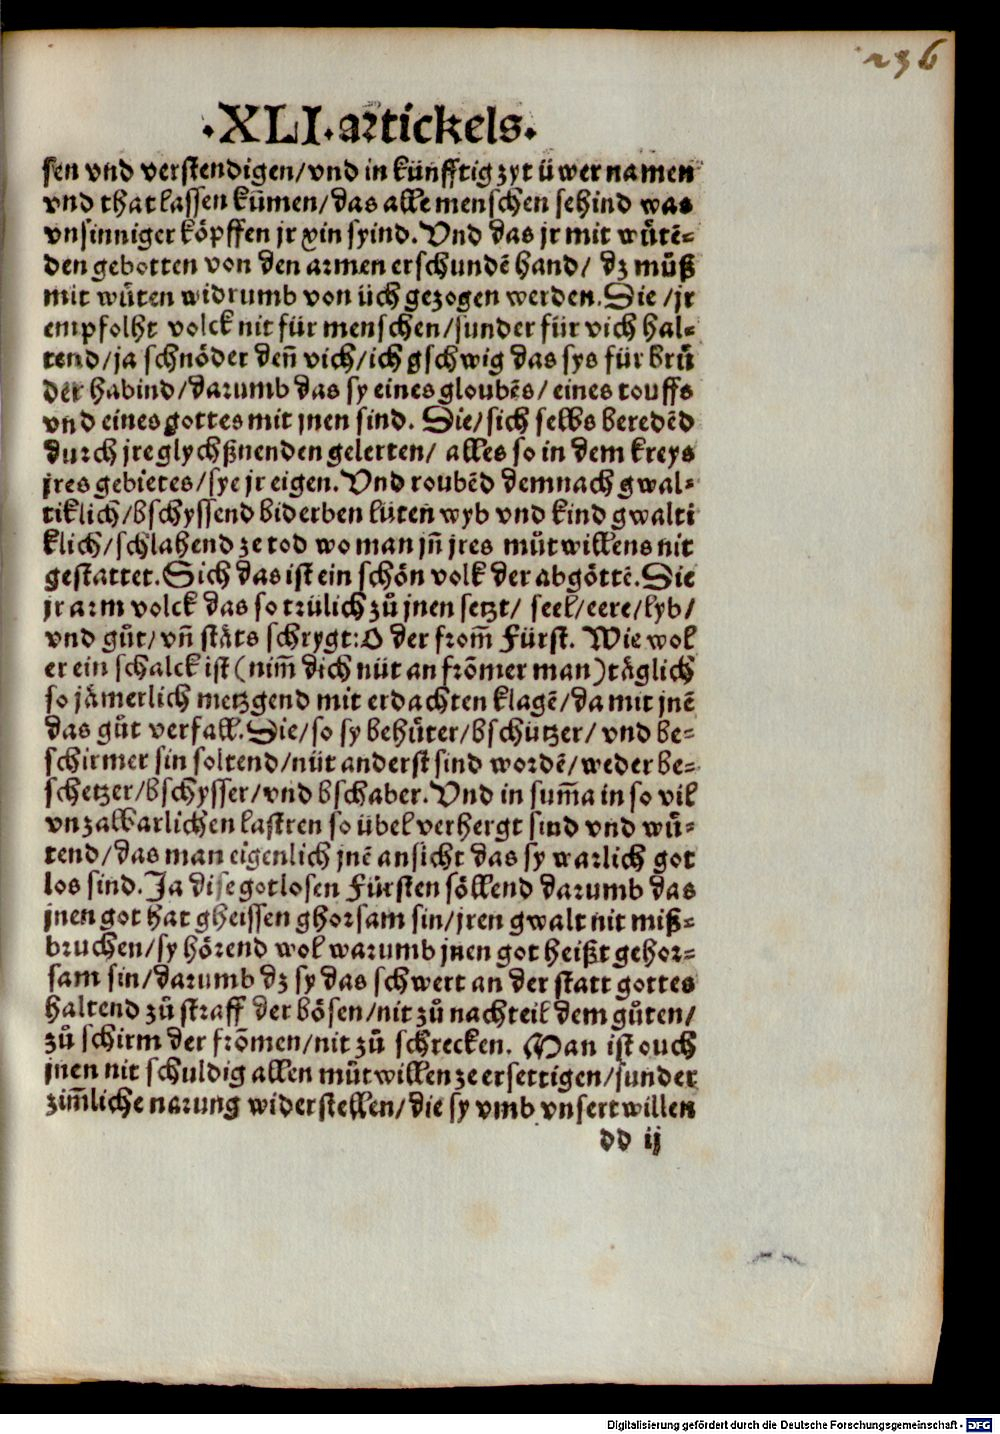 236
·XLI·artickels·
sen vnd verstendigen/vnd in künfftig zyt üwer namen
vnd that lassen kūmen/das alle menschen sehind was
vnsinniger köpffen jr xin syind. Vnd das jr mit wůtē-
den gebotten von den armen erschundē hand/ dz můß
mit wůten widrumb von üch gezogen werden. Sie /jr
empfolht volck nit für menschen/sunder für vich hal-
tend/ja schnöder deñ vich/ich gschwig das sys für brů
der habind/darumb das sy eines gloubēs/ eines touffs
vnd eines gottes mit jnen sind. Sie/sich selbs beredēd
durch jre glychßnenden gelerten/ alles so in dem kreys
jres gebietes/sye jr eigen. Vnd roubēd demnach gwal-
tiklich/bschyssend biderben lüten wyb vnd kind gwalti
klich/schlahend ze tod wo man jñ jres můtwillens nit
gestattet. Sich das ist ein schön volk der abgöttē. Sie
jr arm volck das so trülich zů jnen setzt/ seel/eere/lyb/
vnd gůt/vñ stäts schrygt: O der from̃ Fürst. Wie wol
er ein schalck ist (nim̃ dich nüt an frōmer man) täglich
so jämerlich metzgend mit erdachten klagē/da mit jnē
das gůt verfall. Sie/so sy behůter/bschützer/ vnd be-
schirmer sin soltend/nüt anderst sind wordē/weder be-
schetzer/bschysser/vnd bschaber. Vnd in sum̃a in so vil
vnzalbarlichen lastren so übel verhergt sind vnd wů-
tend/das man eigenlich jnē ansicht das sy warlich got
los sind. Ja dise gotlosen Fürsten söllend darumb das
jnen got hat gheissen ghorsam sin/jren gwalt nit miß-
bruchen/sy hörend wol warumb jnen got heißt gehor-
sam sin/darumb dz sy das schwert an der statt gottes
haltend zů straff der bösen/nit zů nachteil dem gůten/
zů schirm der frōmen/nit zů schrecken. Man ist ouch
jnen nit schuldig allen můtwillen ze ersettigen/sunder
zim̃liche narung widerstellen/die sy vmb vnsert willen
dd ij
Digitalisierung gefördert durch die Deutsche Forschungsgemeinschaft - DFG